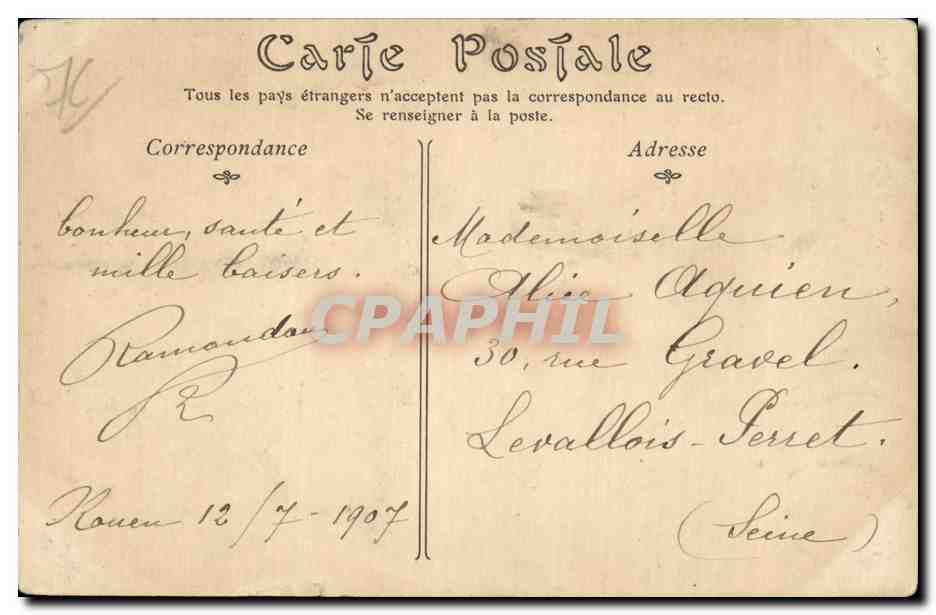 Carte Postale
Tous les pays étrangers n'acceptent pas la correspondance au recto.
Se renseigner à la poste.
Correspondance
bonheur, santé et
mille baisers.
Rouen 12/7-1907
Adresse
Mademoiselle
Alice Aquien,
30, rue Gravel.
Levallois-Perret.
(Seine)
CPAPHIL